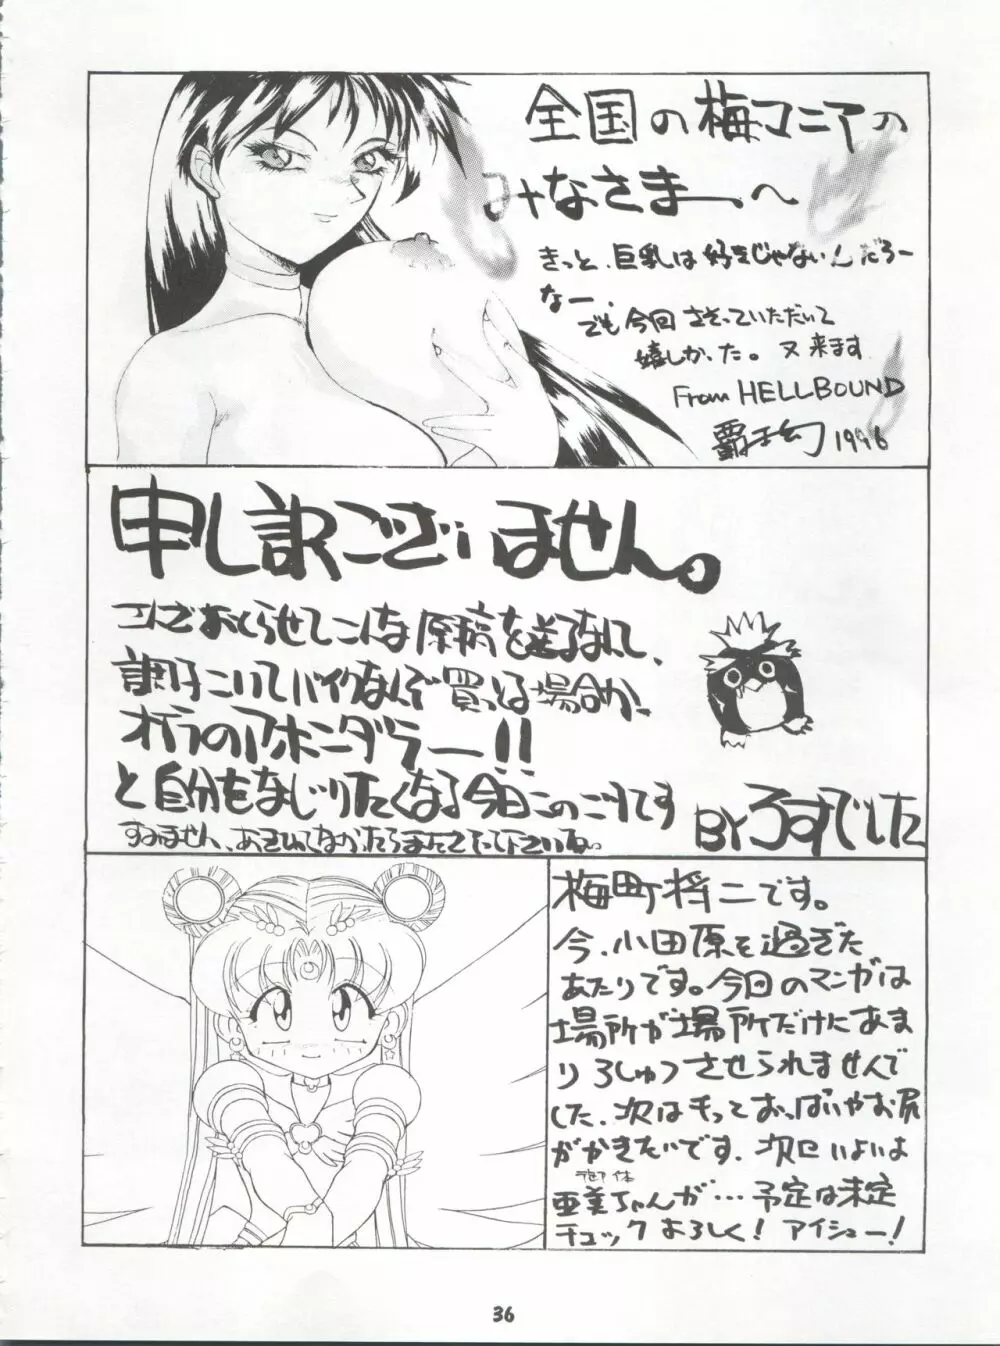 全国の梅マニアの
みなさまー、へ
きっと、巨乳は好きじゃないんだろー
なー、
でも今回さそっていただいて
嬉しかった。又来ます
From HELLBOUND
1996
申し訳ございません。
こんなおくらせてこんな原稿を送るなんて、
調子こいてバイクなんぞ買っとる場合か、
オイラのアホンダラー!!
と自分をなじりたくなる今日このごろです
すみません、あきれてなかったらまたさそって下さいね。
BYろすでした
梅町将二です。
今、小田原を過ぎた
あたりです。今回のマンガは
場所が場所だけにあま
りろしゅつさせられませんで
した、次はもっとおっぱいやお尻
がかきたいです、次はいよいよ
亜美ちゃんが…予定は未定
チェックよろしく! アイシュー!
36